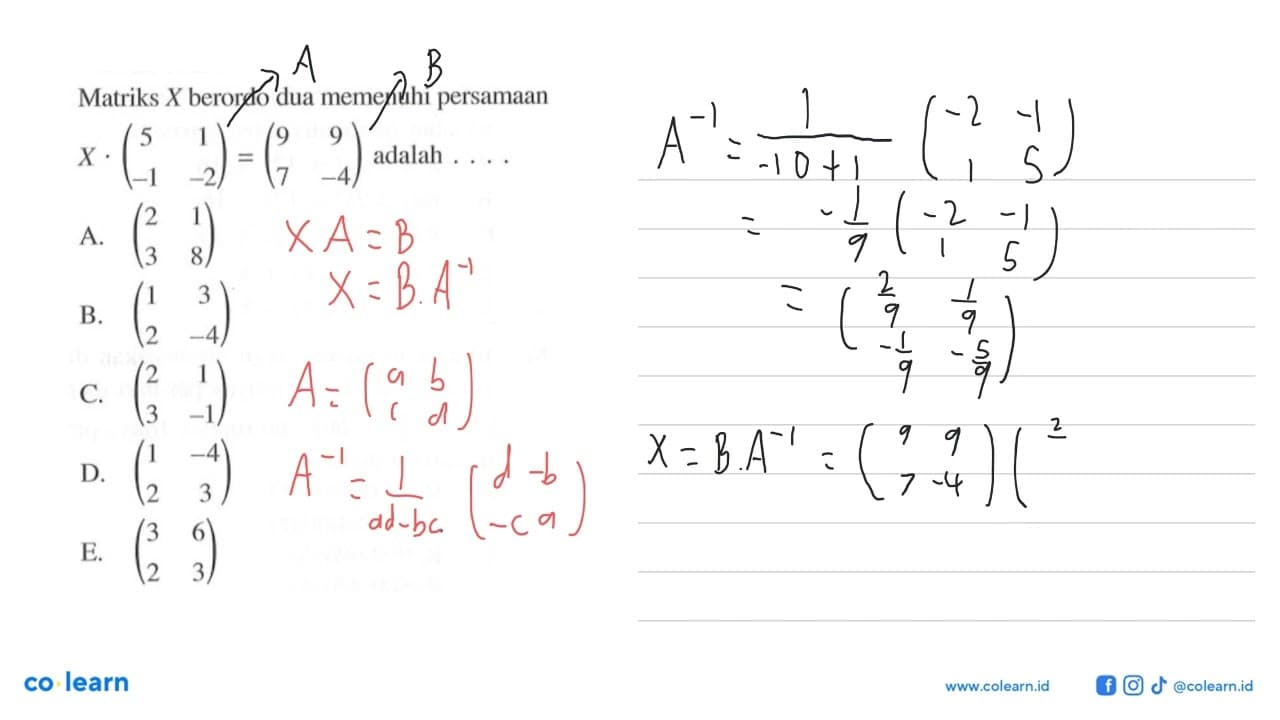 A B
Matriks X berordo dua memenuhi persamaan
X · (5 1 -1 -2) = (9 9 7 -4) adalah . . . .
A. (2 1 3 8)
B. (1 3 2 -4)
C. (2 1 3 -1)
D. (1 -4 2 3)
E. (3 6 2 3)
X A = B
X = B.A⁻¹
A = (a b c d)
A⁻¹ = 1/(ad-bc) (d -b -c a)
A⁻¹ = 1/(-10+1) (-2 -1 1 5)
= -1/9 (-2 -1 1 5)
= (2/9 1/9 -1/9 -5/9)
X = B.A⁻¹ = (9 9 7 -4) (2
co learn
www.colearn.id @colearn.id